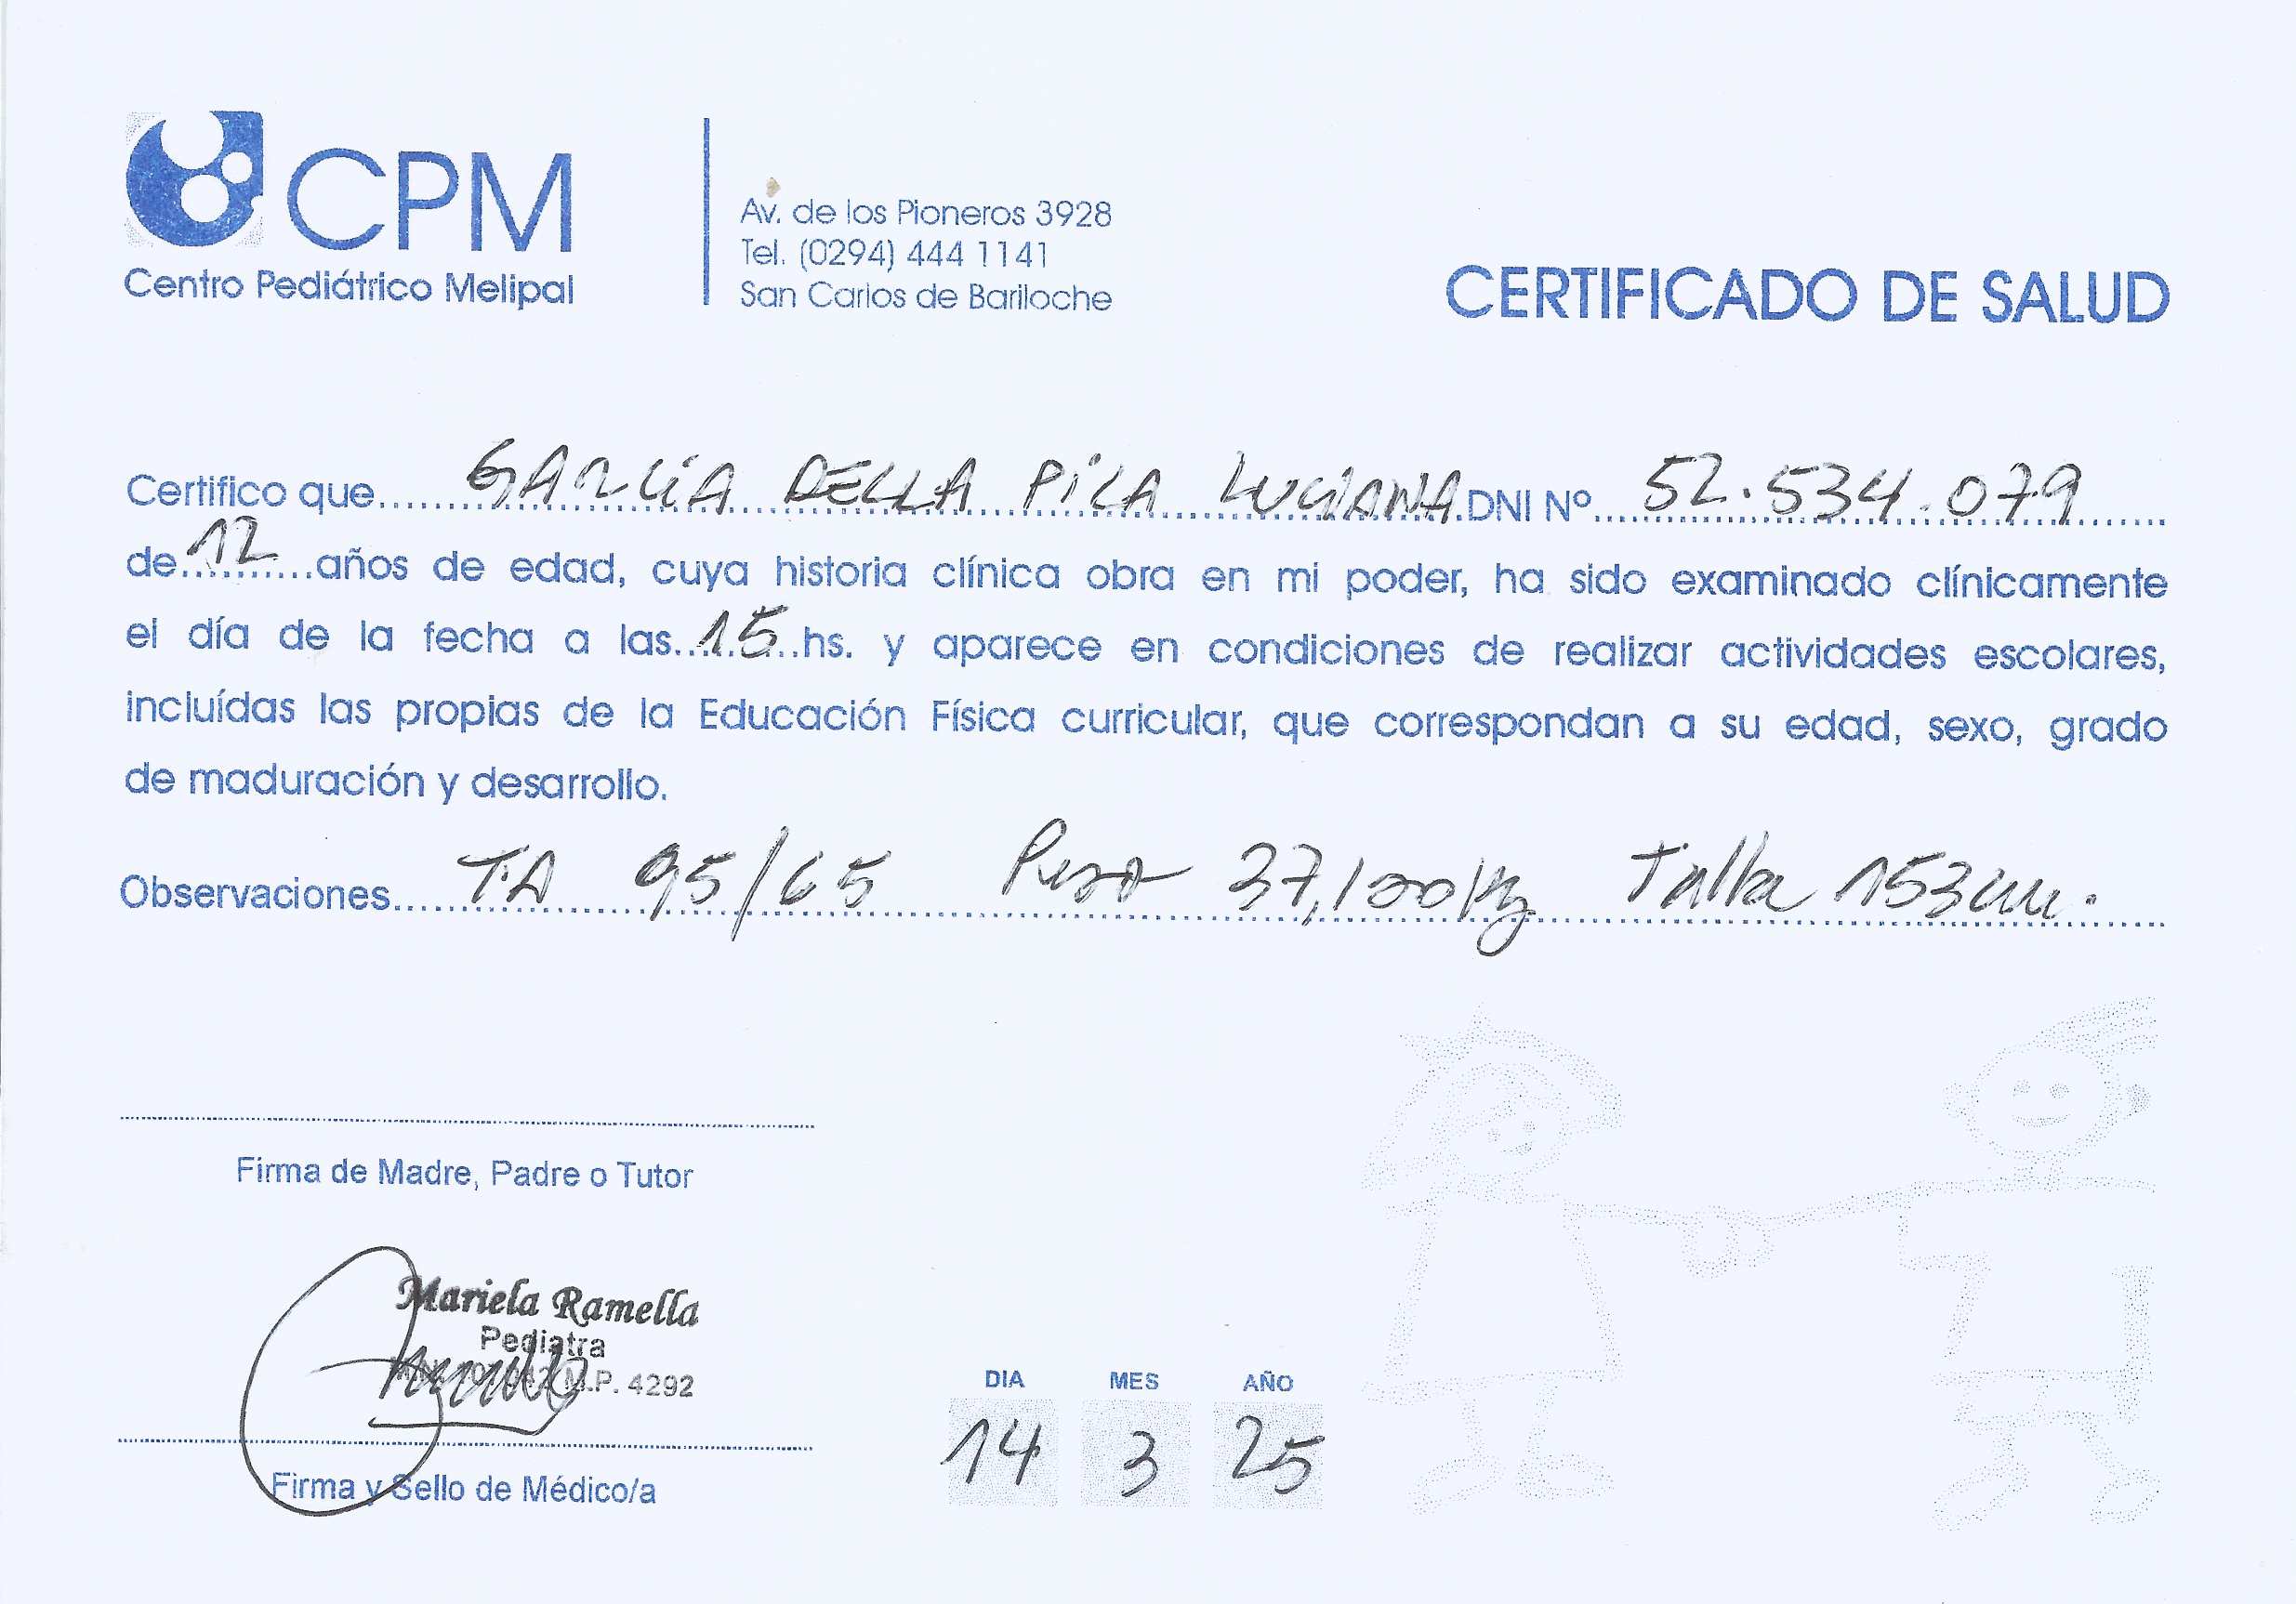 CPM
Centro Pediátrico Melipal
Av. de los Pioneros 3928
Tel. (0294) 444 1141
San Carlos de Bariloche
CERTIFICADO DE SALUD
Certifico que...... GARCÍA DELLA PILA LUCIANA DNI Nº... 52.534.079
de 12 años de edad, cuya historia clínica obra en mi poder, ha sido examinado clínicamente
el día de la fecha a las 15 hs. y aparece en condiciones de realizar actividades escolares,
incluídas las propias de la Educación Física curricular, que correspondan a su edad, sexo, grado
de maduración y desarrollo.
Observaciones.... TA 95/65 Peso 37,100kg Talla 153cm.
Firma de Madre, Padre o Tutor
Mariela Ramella
Pediatra
M.P. 4292
Firma y Sello de Médico/a
DIA MES AÑO
14 3 25